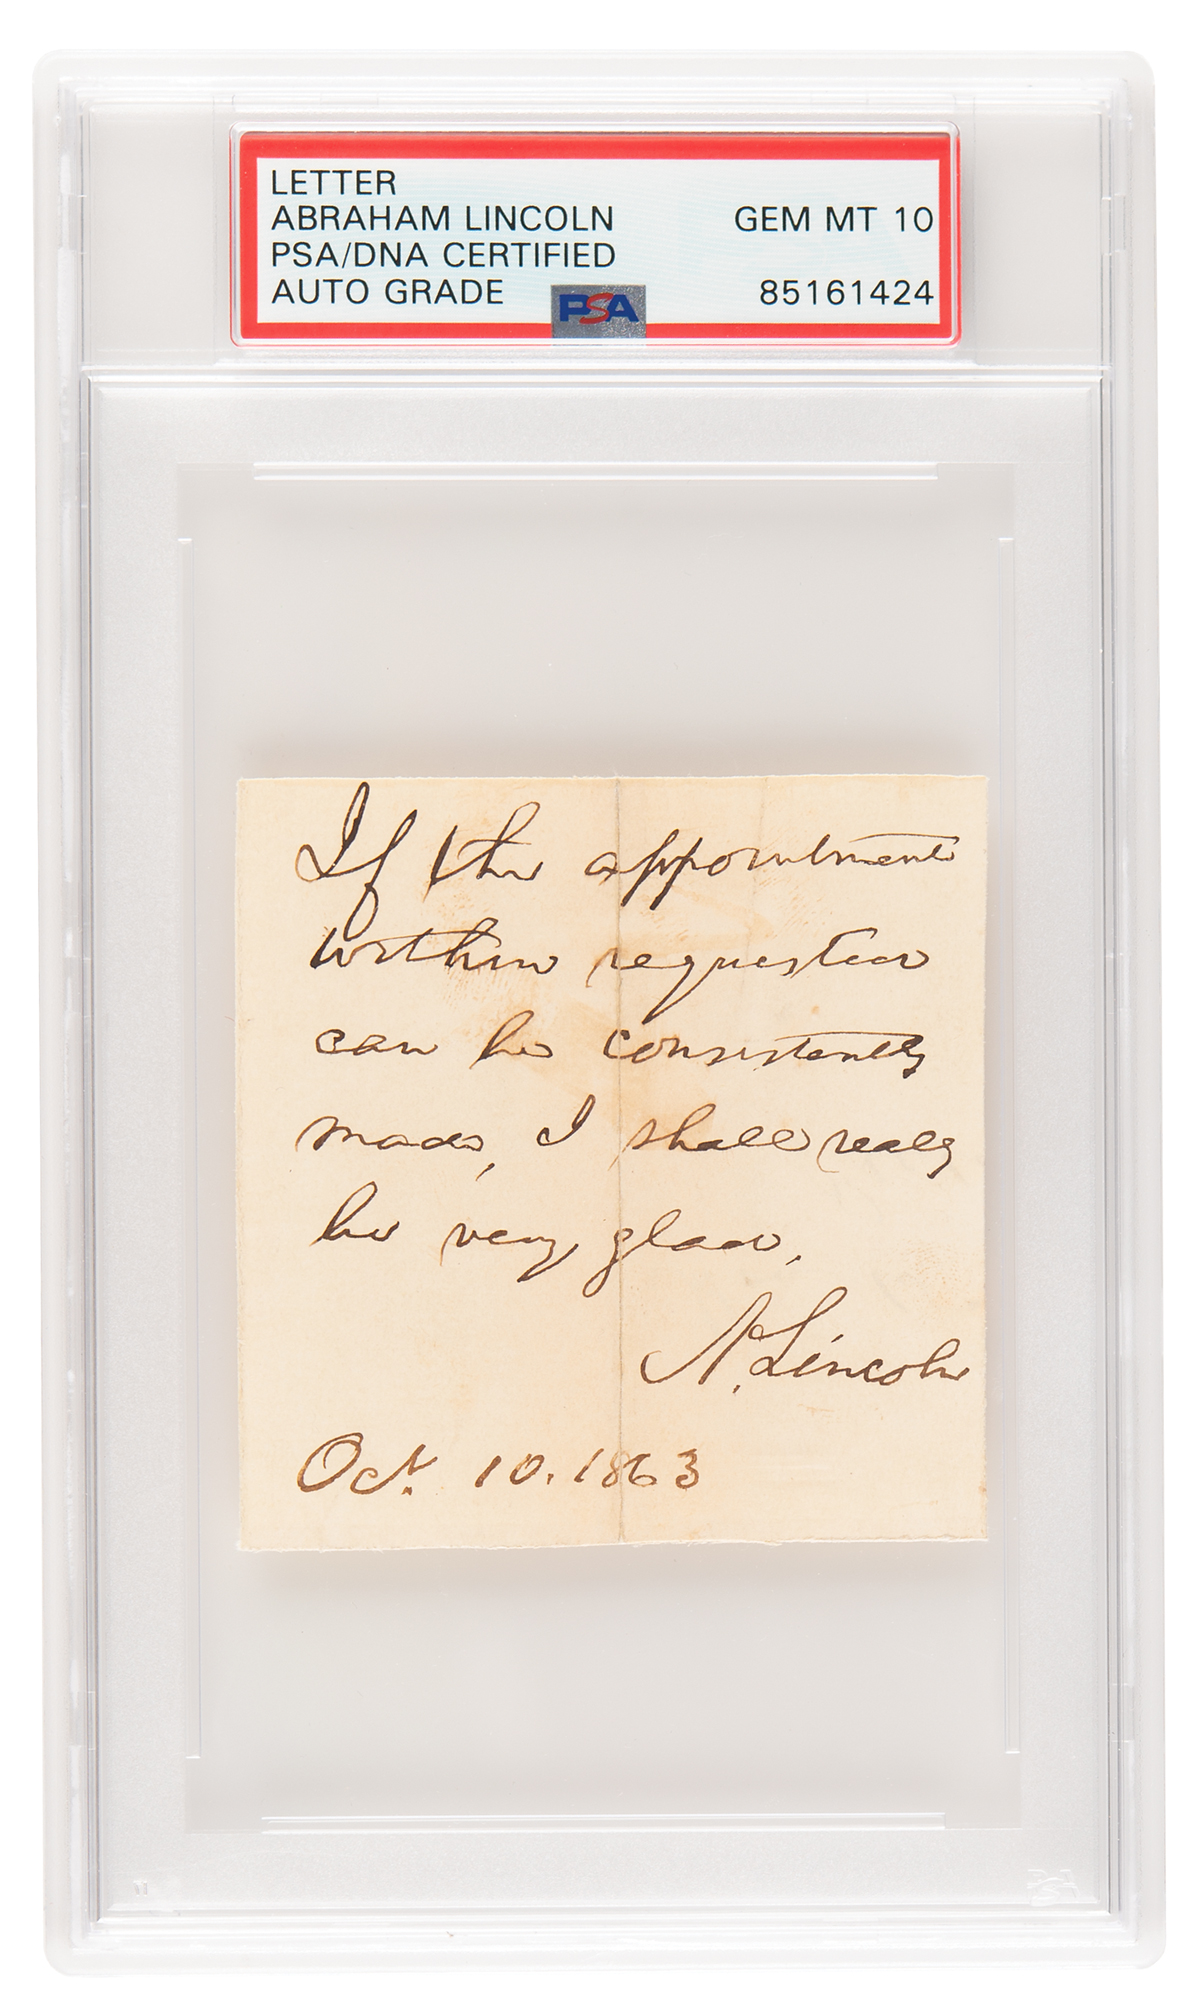 LETTER
ABRAHAM LINCOLN GEM MT 10
PSA/DNA CERTIFIED
AUTO GRADE 85161424
PSA
If the appointment
within requested
can be consistently
made, I shall really
be very glad.
A. Lincoln
Oct. 10. 1863
PSA